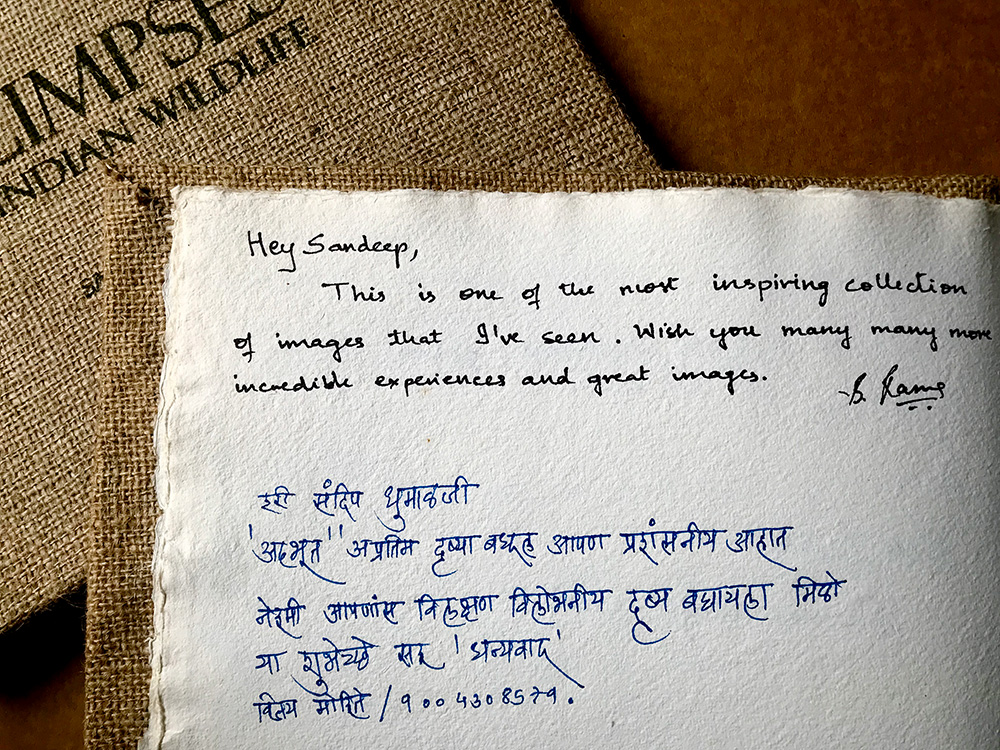 LIMPSES
INDIAN WILDLIFE
Hey Sandeep,
This is one of the most inspiring collection
of images that I've seen. Wish you many many more
incredible experiences and great images.
संदिप धुमाळजी
'अदभूत" अप्रतिम दृष्या बघून आपण प्रशंसनीय आहात
नेहमी आपणांस विलक्षण विलोभनीय दृष्य बघायला मिळो
या शुभेच्छे सह 'धन्यवाद'
विजय मोहिते /